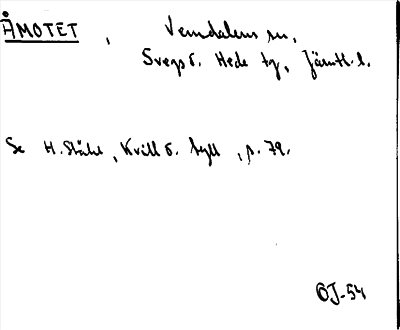 ÅMOTET, Vemdalens sn,
Svegs o. Hede tg, Jämtl. l.
Se H. Ståhl, Kvill o. tyll, p. 79.
OJ-54